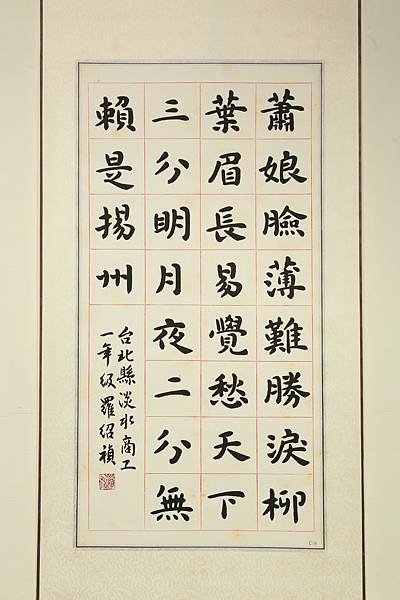 蕭娘臉薄難勝淚柳
葉眉長易覺愁天下
三分明月夜二分無
賴是揚州
台北縣淡水商工
一年級羅紹禎